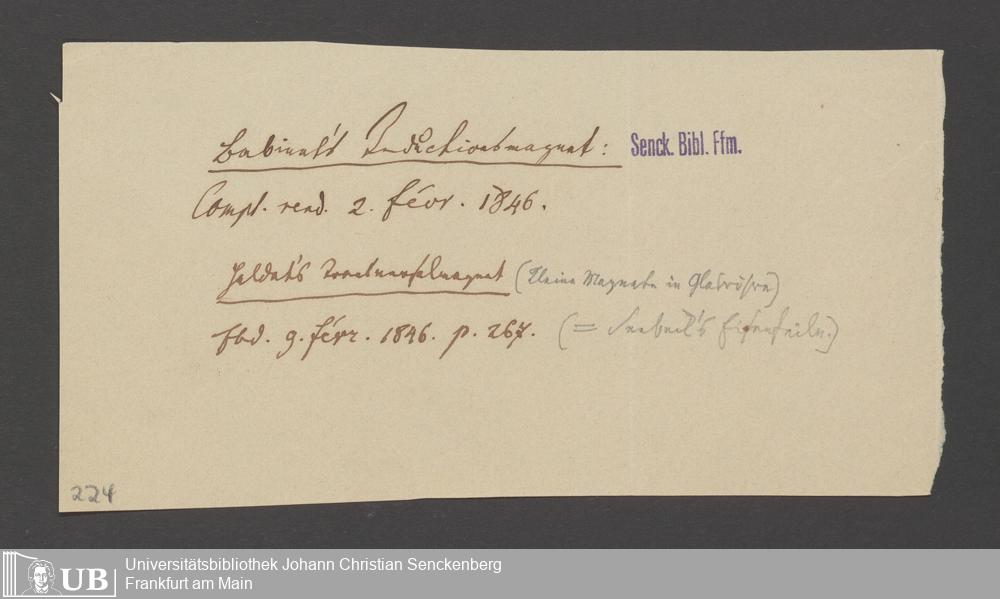 Babinet's Inductionsmagnet: Senck. Bibl. Ffm.
Compt. rend. 2. Févr. 1846.
Haldat's Transversalmagnet (kleine Magnete in Glasröhre)
Ebd. 9. Févr. 1846. p. 267. (= Seebeck's Eisenfeile.)
224
UB Universitätsbibliothek Johann Christian Senckenberg
Frankfurt am Main